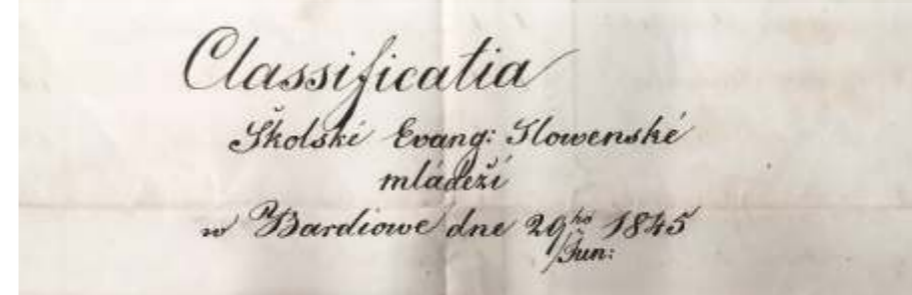 Classificatia
Školské Evang: Slowenské
mládeži
w Bardiowe dne 29ho 1845
/Jun: